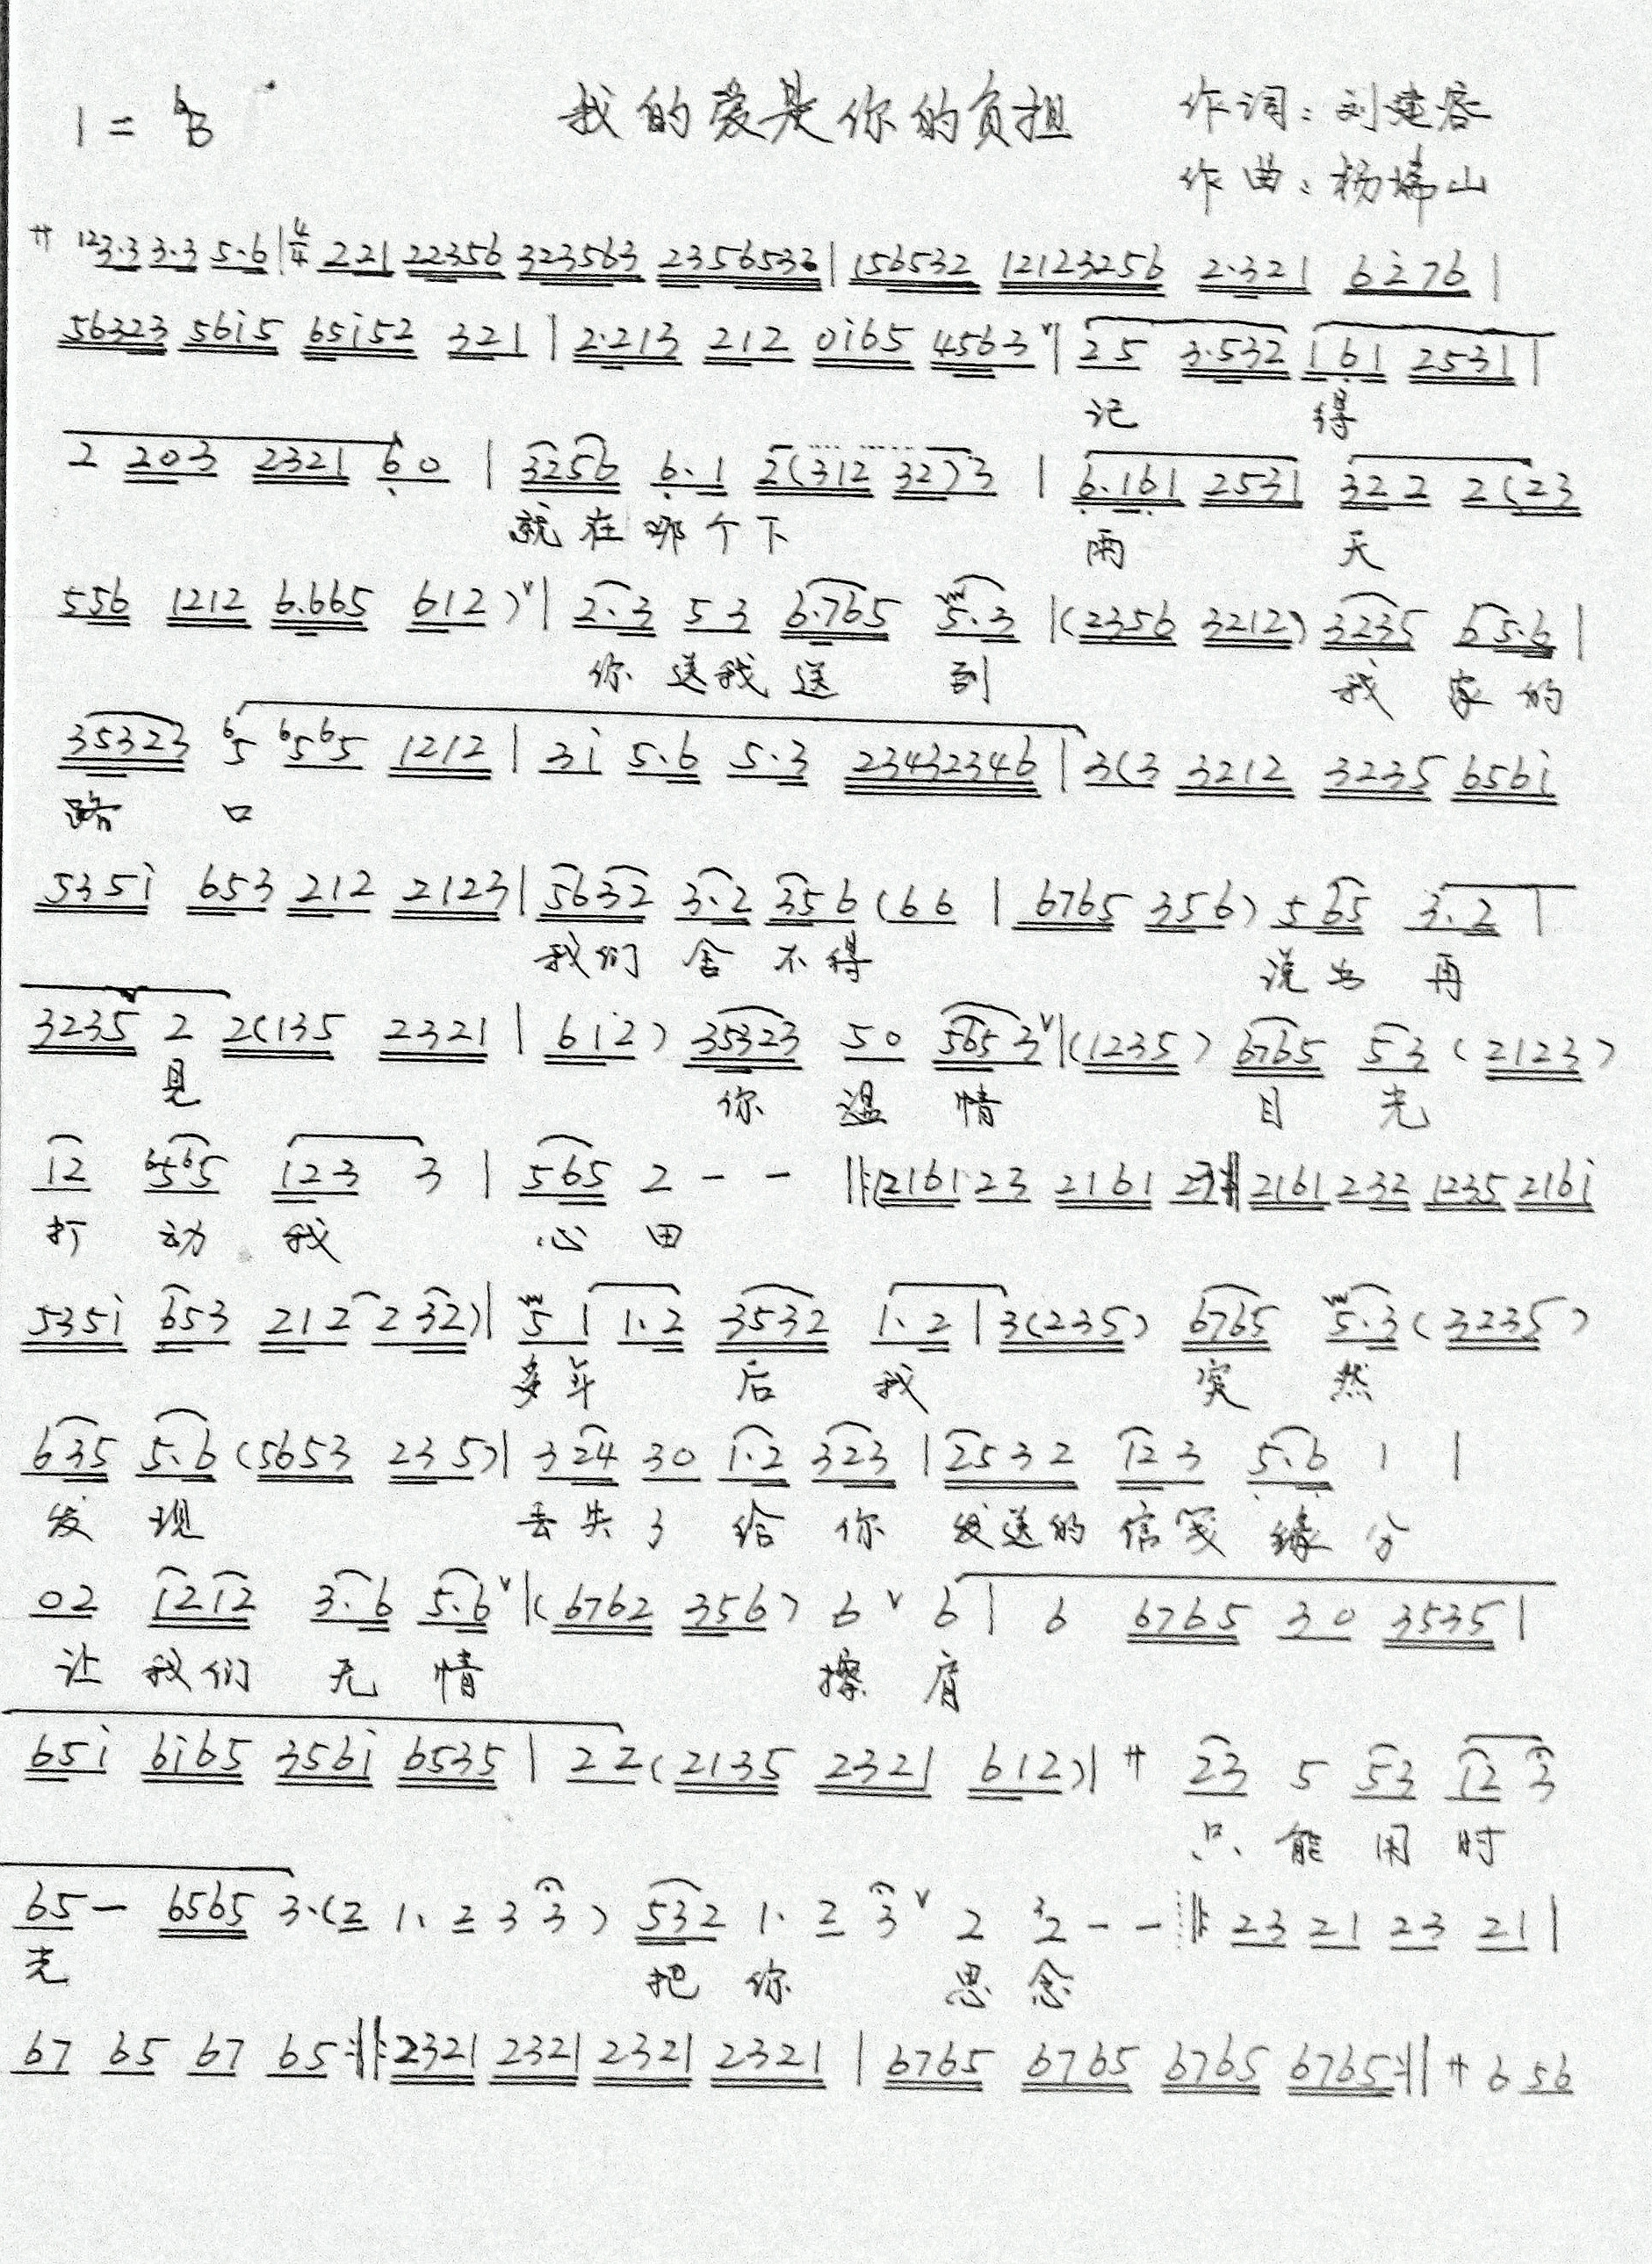 1=♭B 我的爱是你的负担 作词:刘建容
作曲:杨瑞山
サ 123.3 3.3 5.6|4/4 221 22356 323563 2356532|156532 12123256 2.321 6i76|
56323 56i5 65i52 321|2.213 212 0i65 4563ˇ|25 3.532 161 2531|
记 得
2 203 2321 60|3256 6.1 2(312 32)3|6.161 2531 322 2(23
就在那个下 两 天
556 1212 6.665 612)ˇ|2.3 53 6.765 5.3|(2356 3212) 3235 65.6|
你 送我送 到 我 家 的
35323 ⁶5 ⁶5⁶5 1212|3i 5.6 5.3 23432346|3(3 3212 3235 656i
路 口
535i 653 212 2123|5632 3.2 356(66|6765 356) 565 3.2|
我们 舍 不得 说出 再
3235 2 2(135 2321|612) 35323 50 5653ˇ|(1235) 6765 53(2123)
见 你 温 情 目 光
12 ⁶5⁶5 123 3|565 2 - - ‖:(2161 23 2161 23:‖ 2161 232 1235 216i
打 动 我 心 田
535i 653 212 232)|51 1.2 3532 1.2|3(235) 6765 5.3(3235)
多年 后 我 突 然
635 5.6(5653 235)|324 30 1.2 323|2532 123 5.6 1|
发 现 丢失了 给 你 发送的 信笺 缘 分
02 1212 3.6 5.6ˇ|(6762 356) 6ˇ6|6 6765 30 3535|
让 我们 无 情 擦 肩
65i 6i65 356i 6535|22(2135 2321 612)|サ 23 5 53 12 3
只 能 用 时
65- 6565 3.(2 1.2 3 3) 532 1.2 3ˇ 2 ³2 - - ‖: 23 21 23 21|
光 把 你 思 念
67 65 67 65:‖:2321 2321 2321 2321|6765 6765 6765 6765:‖ サ 6 56